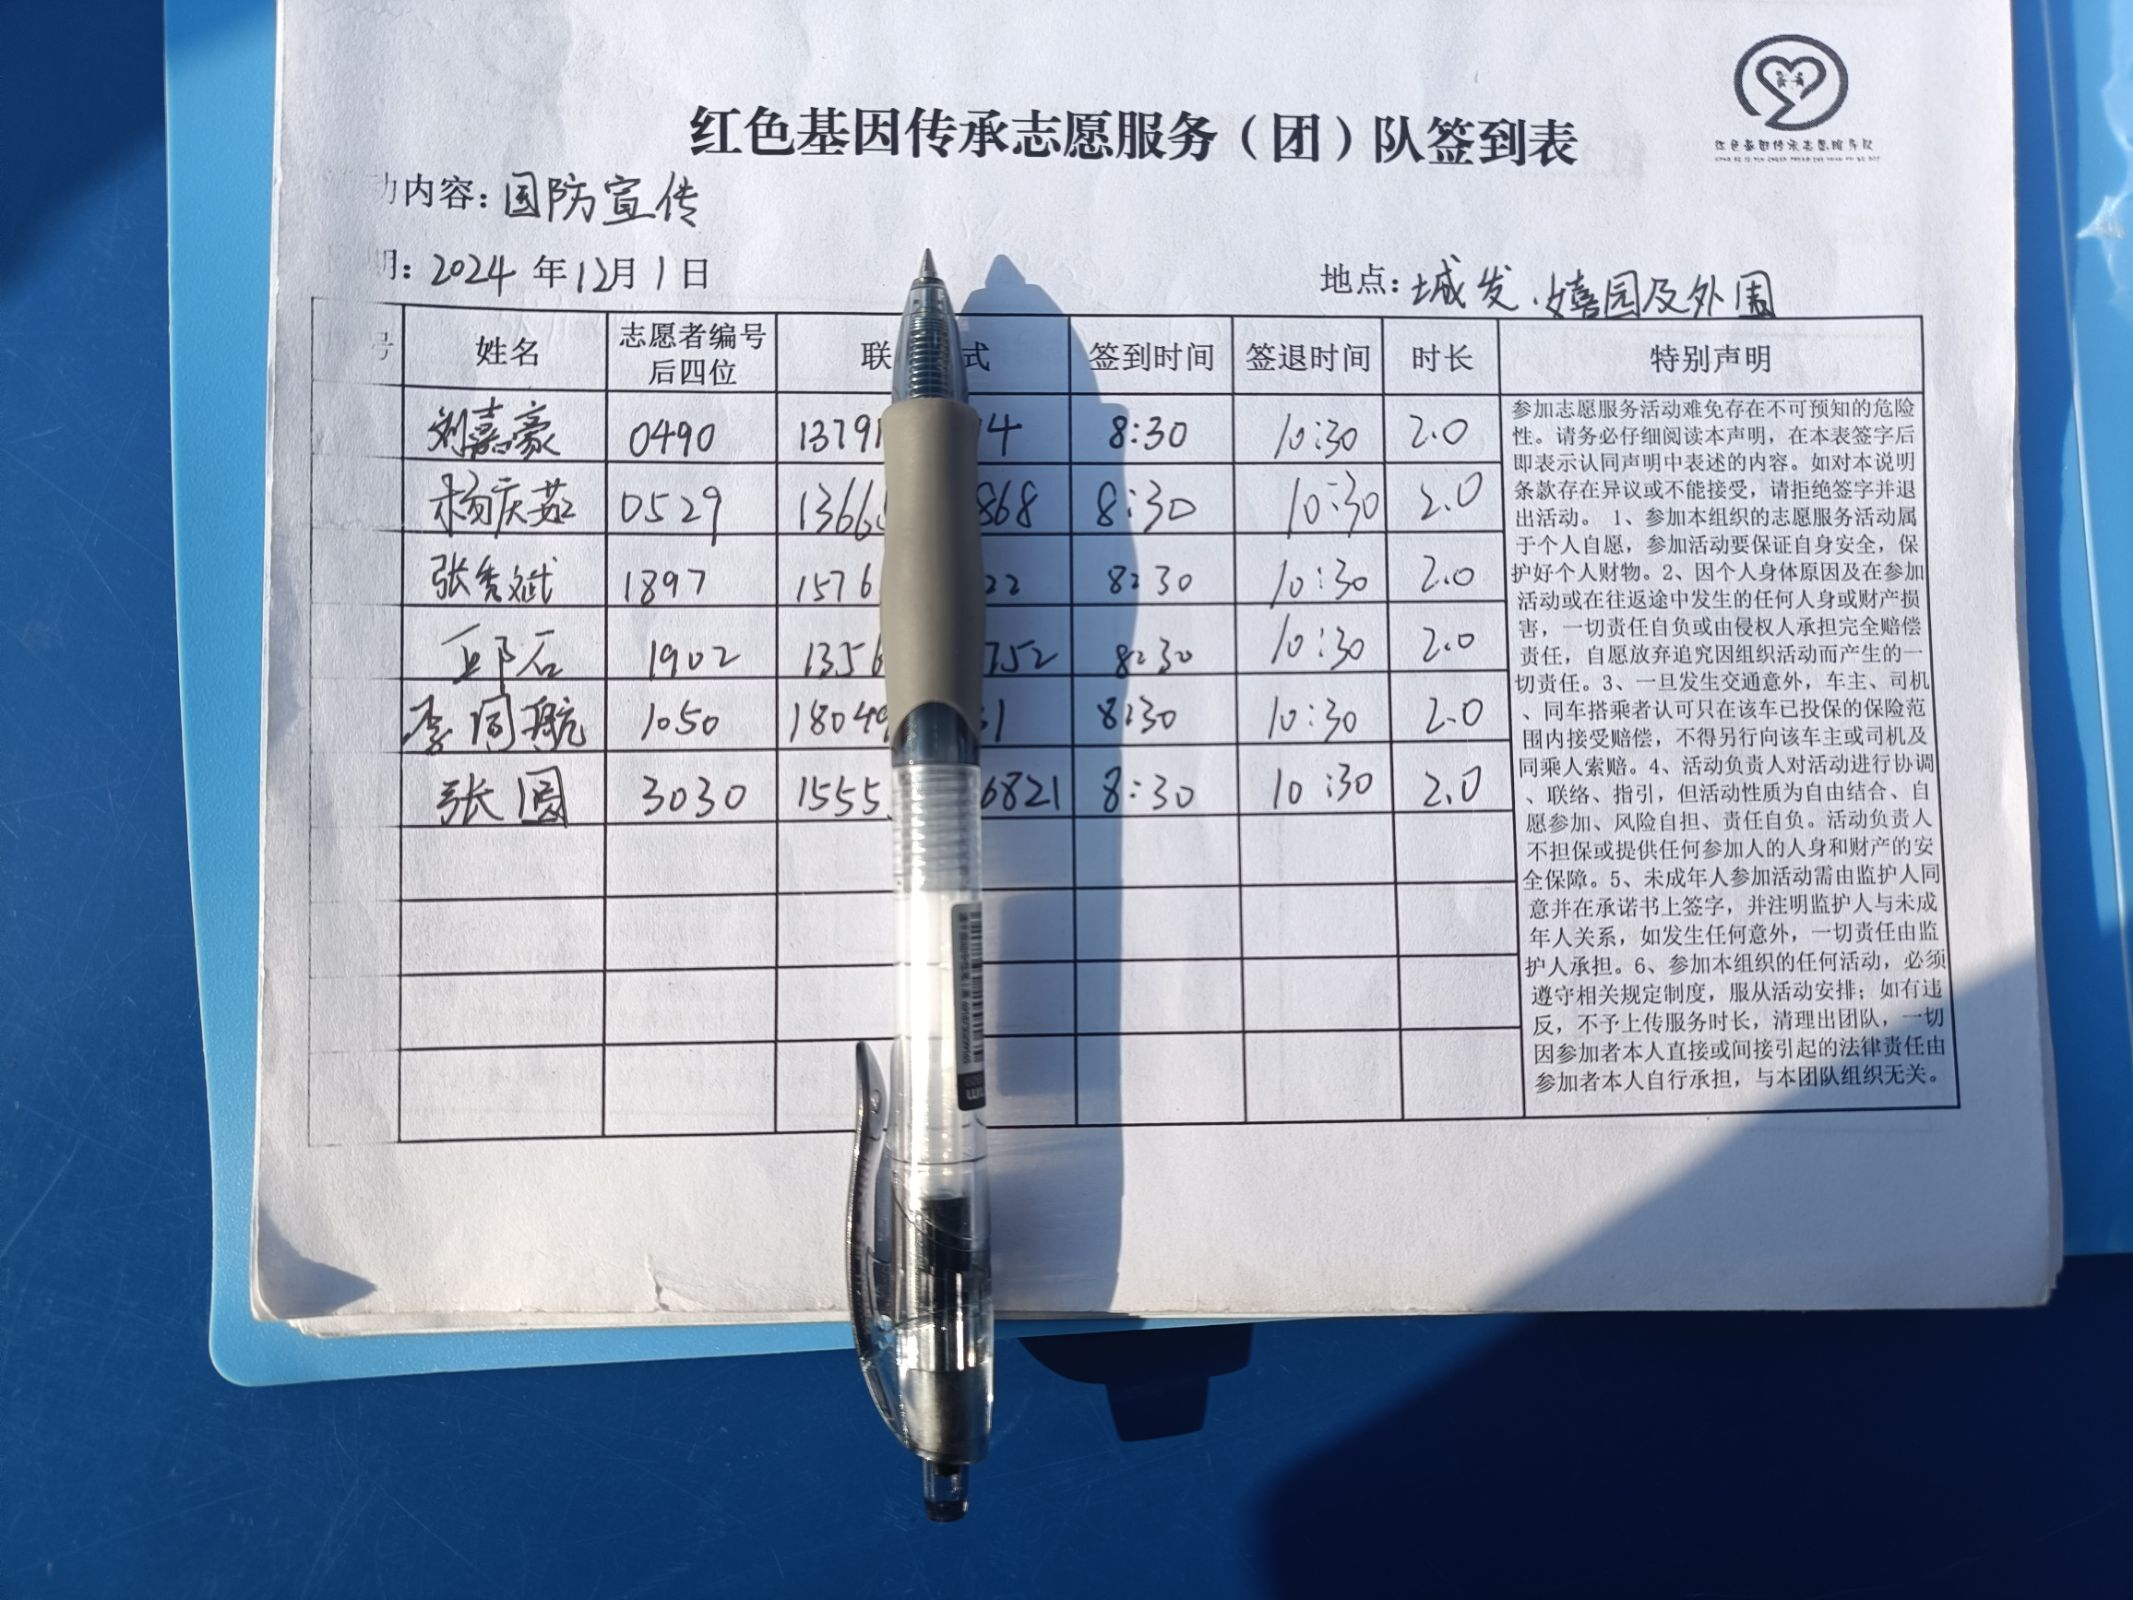 红色基因传承志愿服务(团)队签到表
红色基因传承志愿服务队
内容:国防宣传
期:2024年12月1日 地点:城发.嬉园及外围
号 姓名 志愿者编号后四位 联 式 签到时间 签退时间 时长 特别声明
刘嘉豪 0490 1379 14 8:30 10:30 2.0
杨庆茹 0529 1366 868 8:30 10:30 2.0
张秀斌 1897 1576 22 8:30 10:30 2.0
邱石 1902 1356 752 8:30 10:30 2.0
李同航 1050 1804 31 8:30 10:30 2.0
张圆 3030 1555 6821 8:30 10:30 2.0
参加志愿服务活动难免存在不可预知的危险
性。请务必仔细阅读本声明,在本表签字后
即表示认同声明中表述的内容。如对本说明
条款存在异议或不能接受,请拒绝签字并退
出活动。 1、参加本组织的志愿服务活动属
于个人自愿,参加活动要保证自身安全,保
护好个人财物。2、因个人身体原因及在参加
活动或在往返途中发生的任何人身或财产损
害,一切责任自负或由侵权人承担完全赔偿
责任,自愿放弃追究因组织活动而产生的一
切责任。3、一旦发生交通意外,车主、司机
、同车搭乘者认可只在该车已投保的保险范
围内接受赔偿,不得另行向该车主或司机及
同乘人索赔。4、活动负责人对活动进行协调
、联络、指引,但活动性质为自由结合、自
愿参加、风险自担、责任自负。活动负责人
不担保或提供任何参加人的人身和财产的安
全保障。5、未成年人参加活动需由监护人同
意并在承诺书上签字,并注明监护人与未成
年人关系,如发生任何意外,一切责任由监
护人承担。6、参加本组织的任何活动,必须
遵守相关规定制度,服从活动安排;如有违
反,不予上传服务时长,清理出团队,一切
因参加者本人直接或间接引起的法律责任由
参加者本人自行承担,与本团队组织无关。